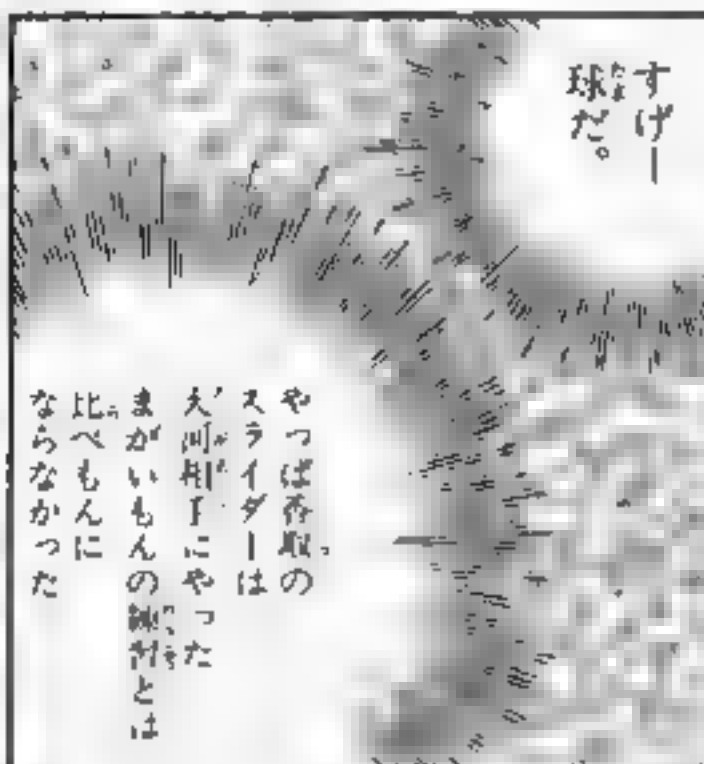 すげー
球だ。
やっぱ香取の
スライダーは
大河相手にやった
まがいもんの練習とは
比べもんに
ならなかった